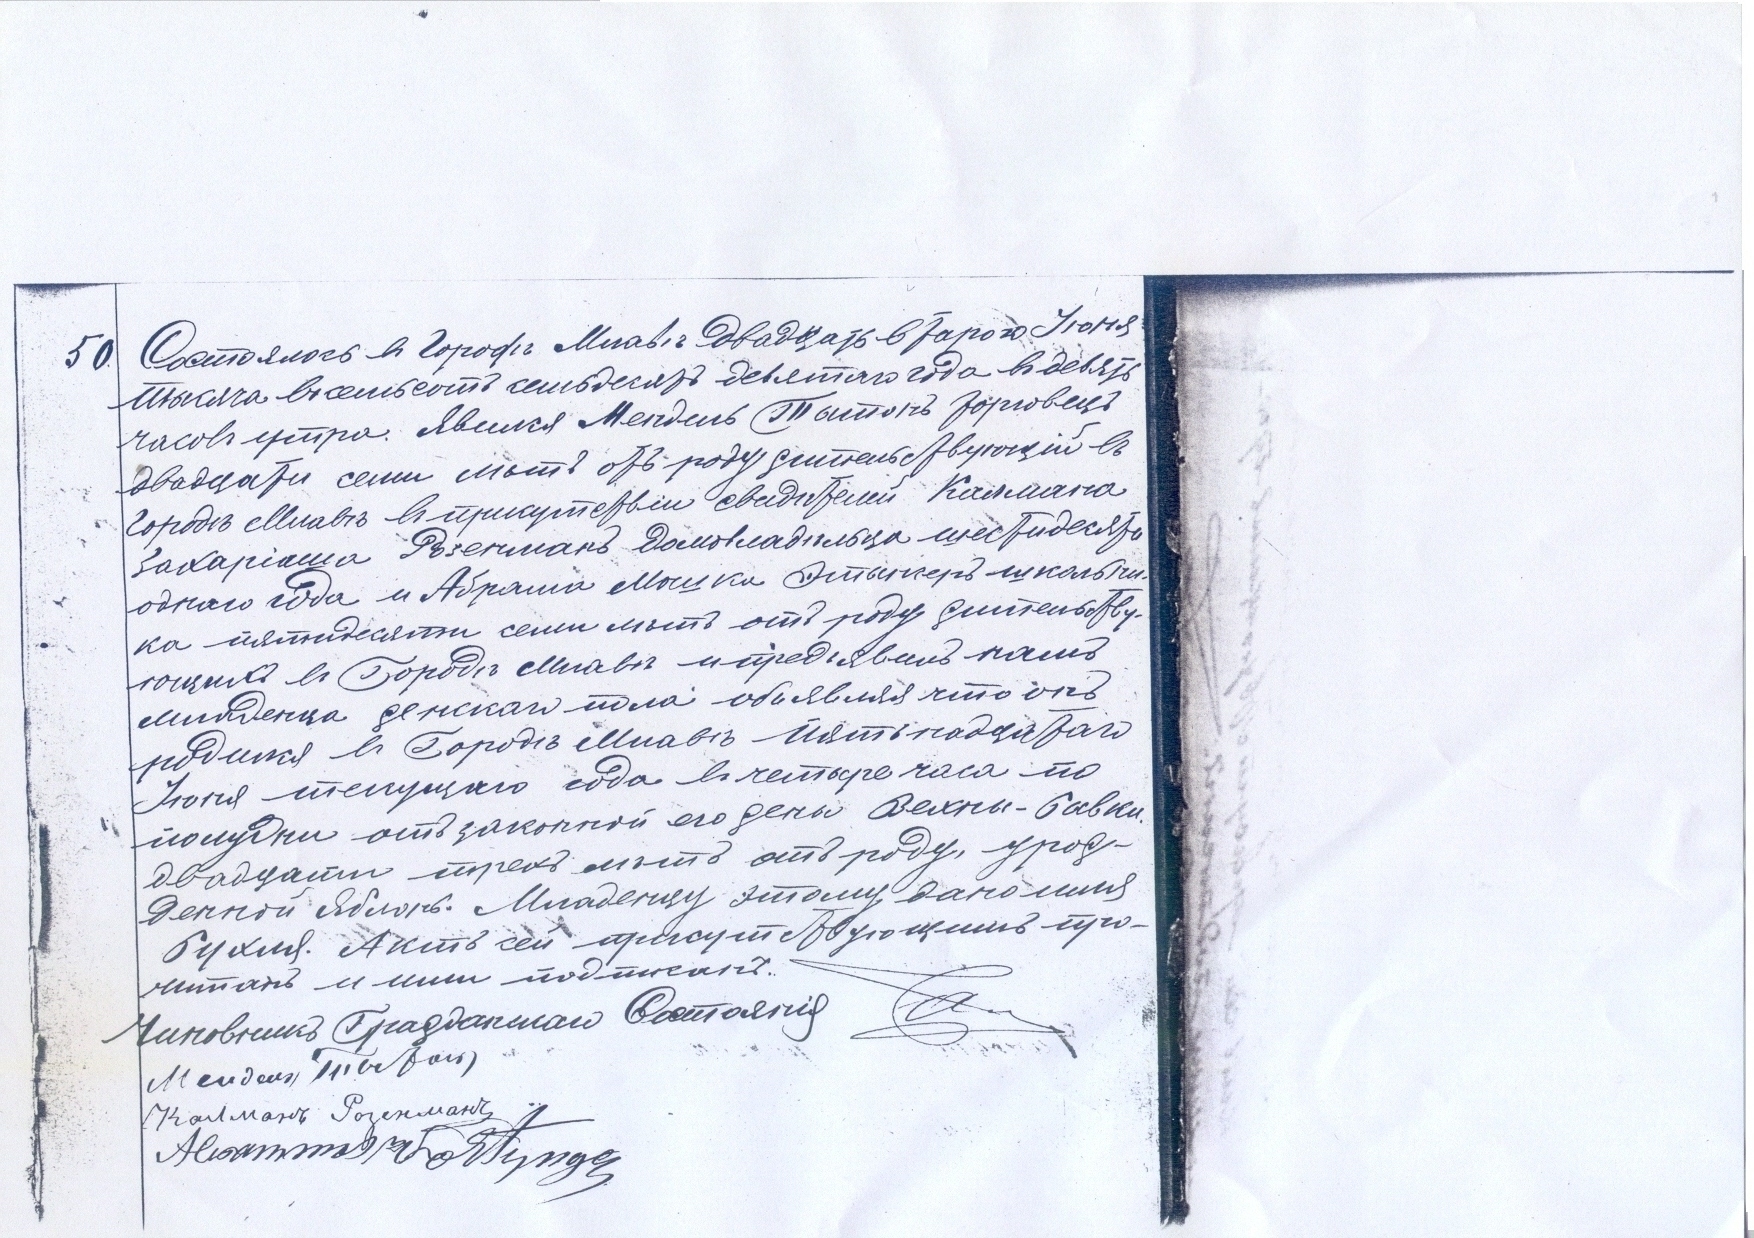 50. Состоялось въ Городѣ Млавѣ двадцать втораго Іюня
тысяча восемьсотъ семьдесятъ девятаго года въ девять
часовъ утра. Явился Мендель Тытонъ торговецъ
двадцати семи лѣтъ отъ роду жительствующій въ
городѣ Млавѣ въ присутствіи свидѣтелей Калмана
Захаріаша Розенманъ домовладѣльца шестидесяти
однаго года и Абрама Мошка школьни-
ка пятидесяти семи лѣтъ отъ роду жительству-
ющихъ въ Городѣ Млавѣ и предъявилъ намъ
младенца женскаго пола объявляя что онъ
родился въ Городѣ Млавѣ пятьнадцатаго
Іюня текущаго года въ четыре часа по
полудни отъ законной его жены
двадцати трехъ лѣтъ отъ роду, урож-
денной Яблонь. Младенцу этому дано имя
Рухля. Актъ сей присутствующимъ про-
читанъ и ими подписанъ.
Чиновникъ Гражданскаго Состоянія
Мендель
Калманъ Розенманъ